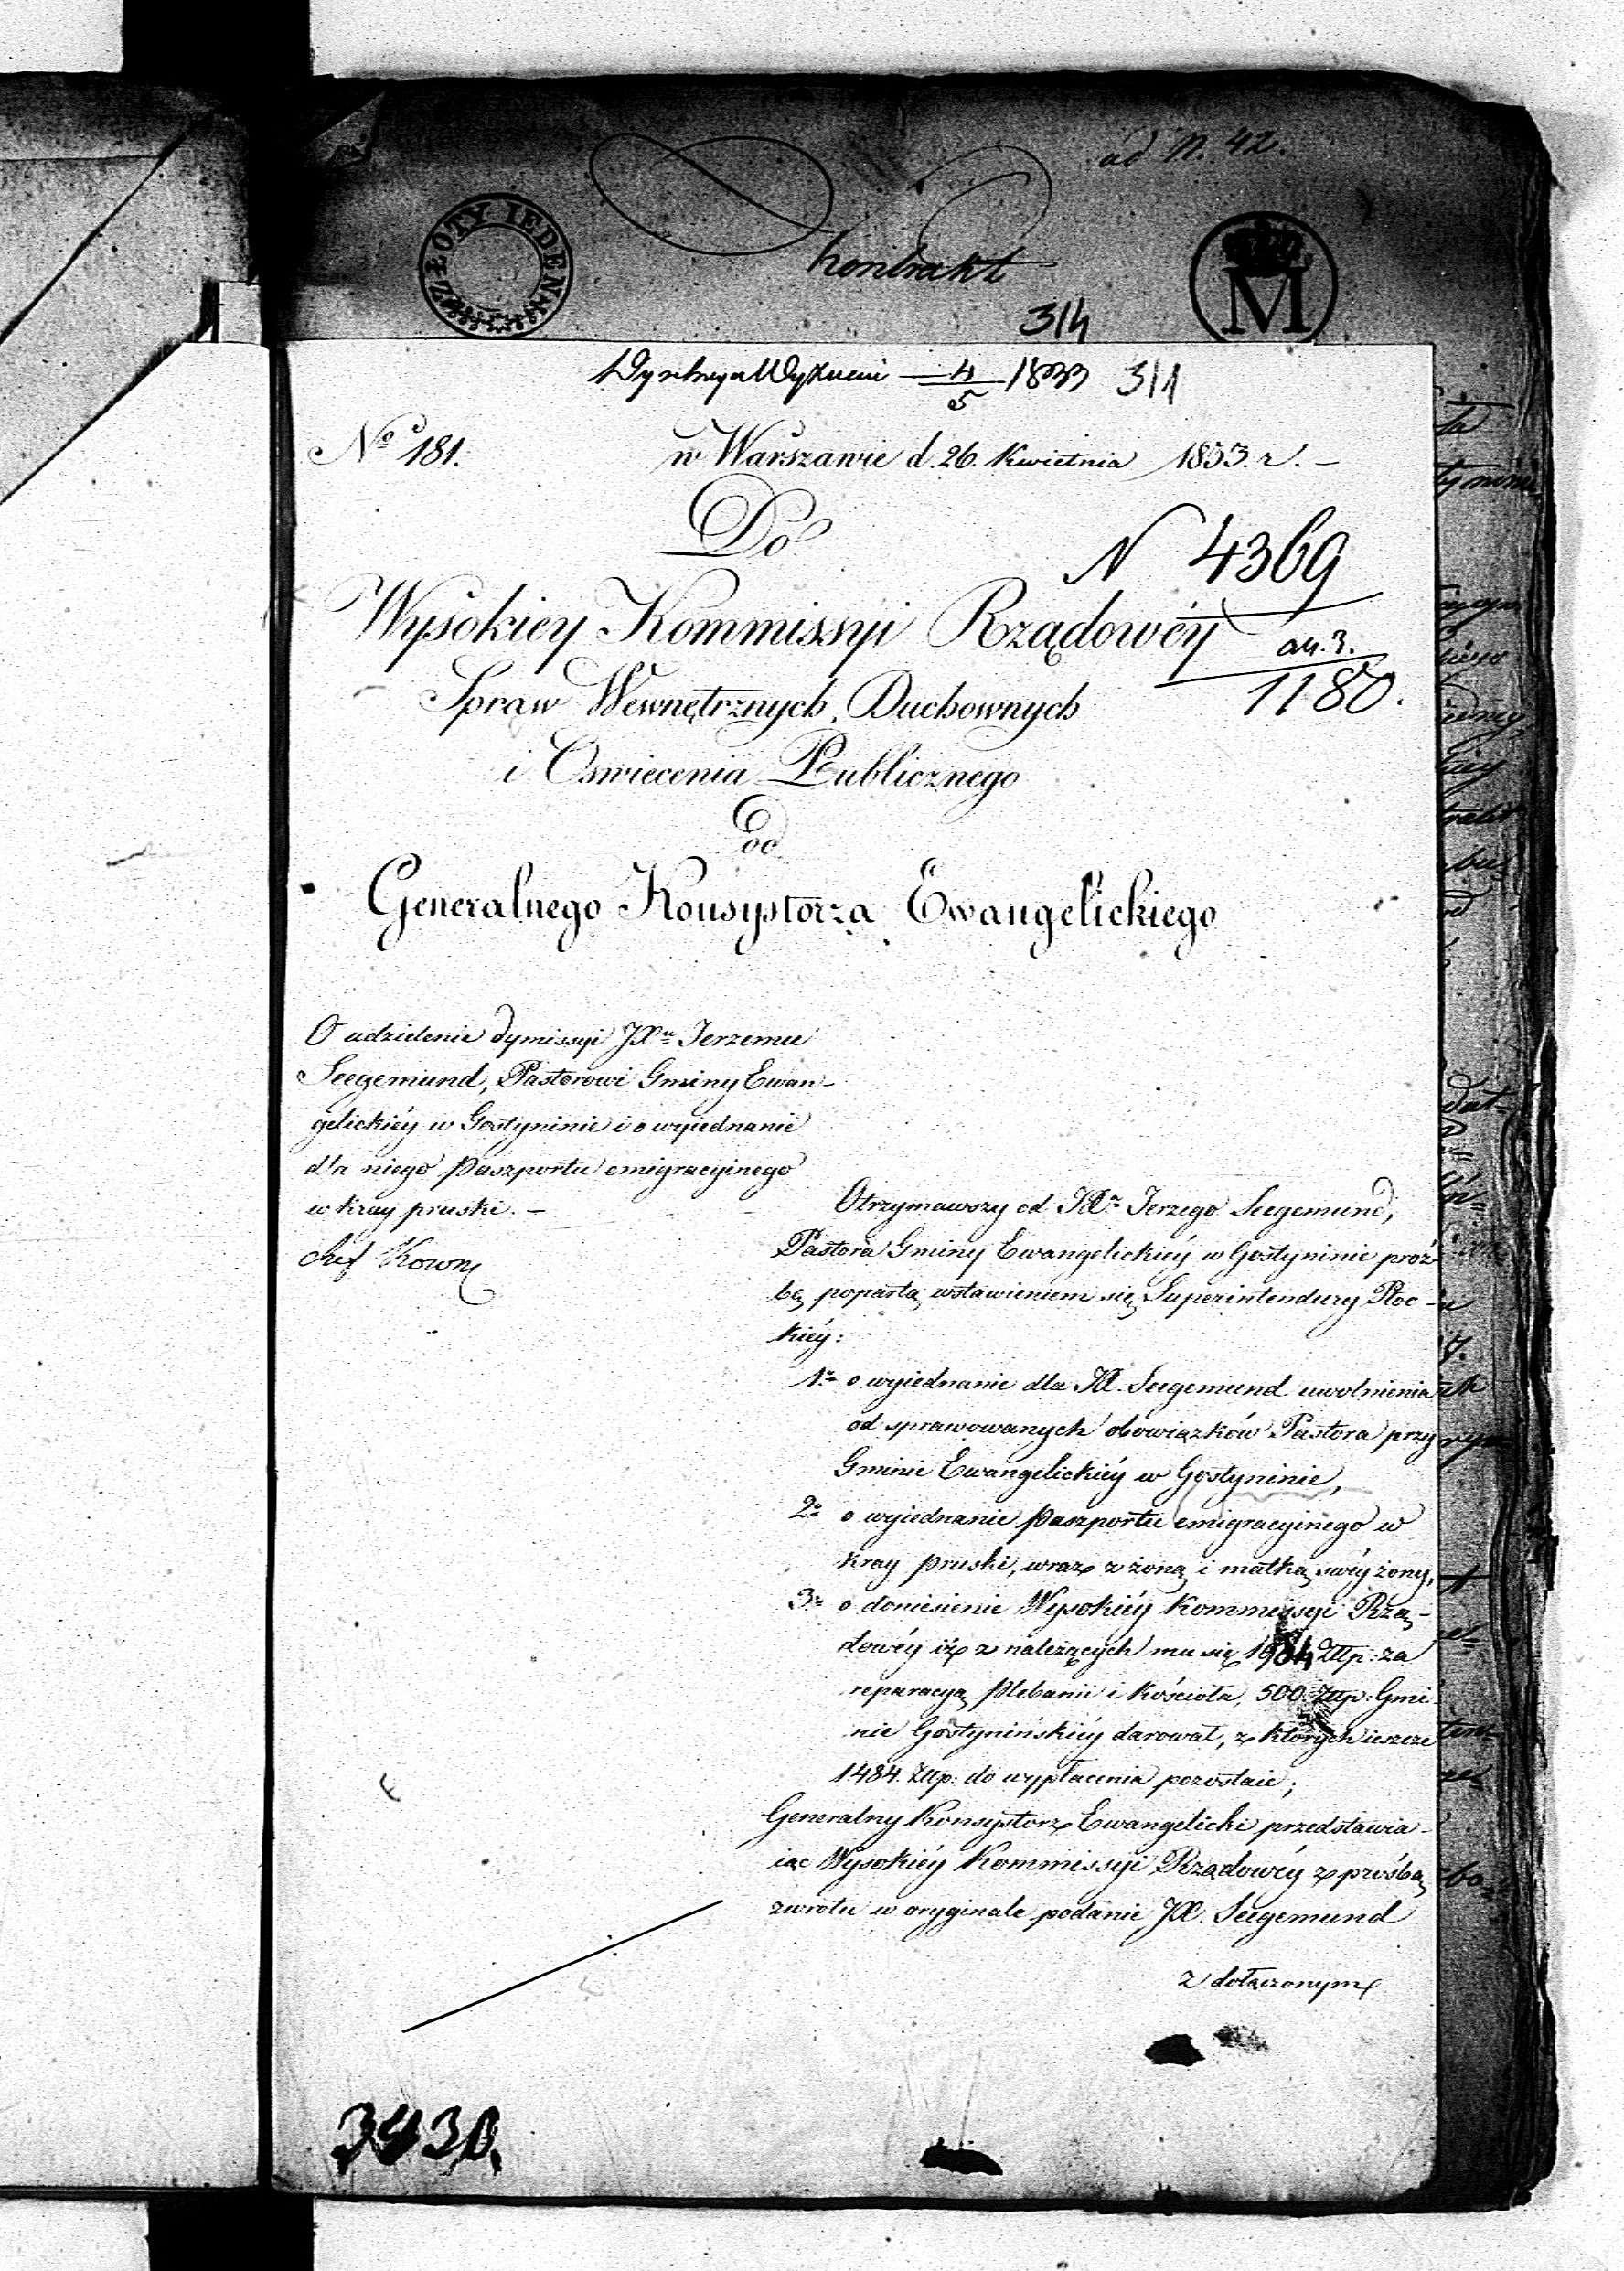 ad N. 42.
ZŁOTY IEDEN
kontrakt
M
314
4/5 1833 311
No 181. w Warszawie d. 26. Kwietnia 1833. r. –
Do
N 4369
Wysokiey Kommissyi Rządowéy
an. 3.
Spraw Wewnętrznych, Duchownych
1180.
i Oswiecenia Publicznego
od
Generalnego Konsystorza Ewangelickiego
O udzielenie dymissyi JXu Jerzemu
Seegemund, Pastorowi Gminy Ewan-
gelickiéy w Gostyninie i o wyiednanie
dla niego paszportu emigracyinego
w kray pruski. –
Otrzymawszy od JXa Jerzego Seegemund,
Pastora Gminy Ewangelickiéy w Gostyninie proź-
bę popartą wstawieniem się Superintendury Płoc-
kiéy:
1o o wyiednanie dla JX. Seegemund uwolnienia
od sprawowanych obowiązków Pastora przy
Gminie Ewangelickiéy w Gostyninie,
2o o wyiednanie paszportu emigracyinego w
kray pruski, wraz z żoną i matką swéy żony,
3o o doniesienie Wysokiéy Kommissyi Rzą-
dowéy iż z należących mu się 1984 Złp: za
reparacyą plebanii i kościoła, 500 Złp: Gmi-
nie Gostynińskiéy darował, z których ieszcze
1484. Złp: do wypłacenia pozostaie;
Generalny Konsystorz Ewangelicki przedstawia-
iąc Wysokiéy Kommissyi Rządowéy z prośbą
zwrotu w oryginale podanie JX. Seegemund
z dołączonym
3430.